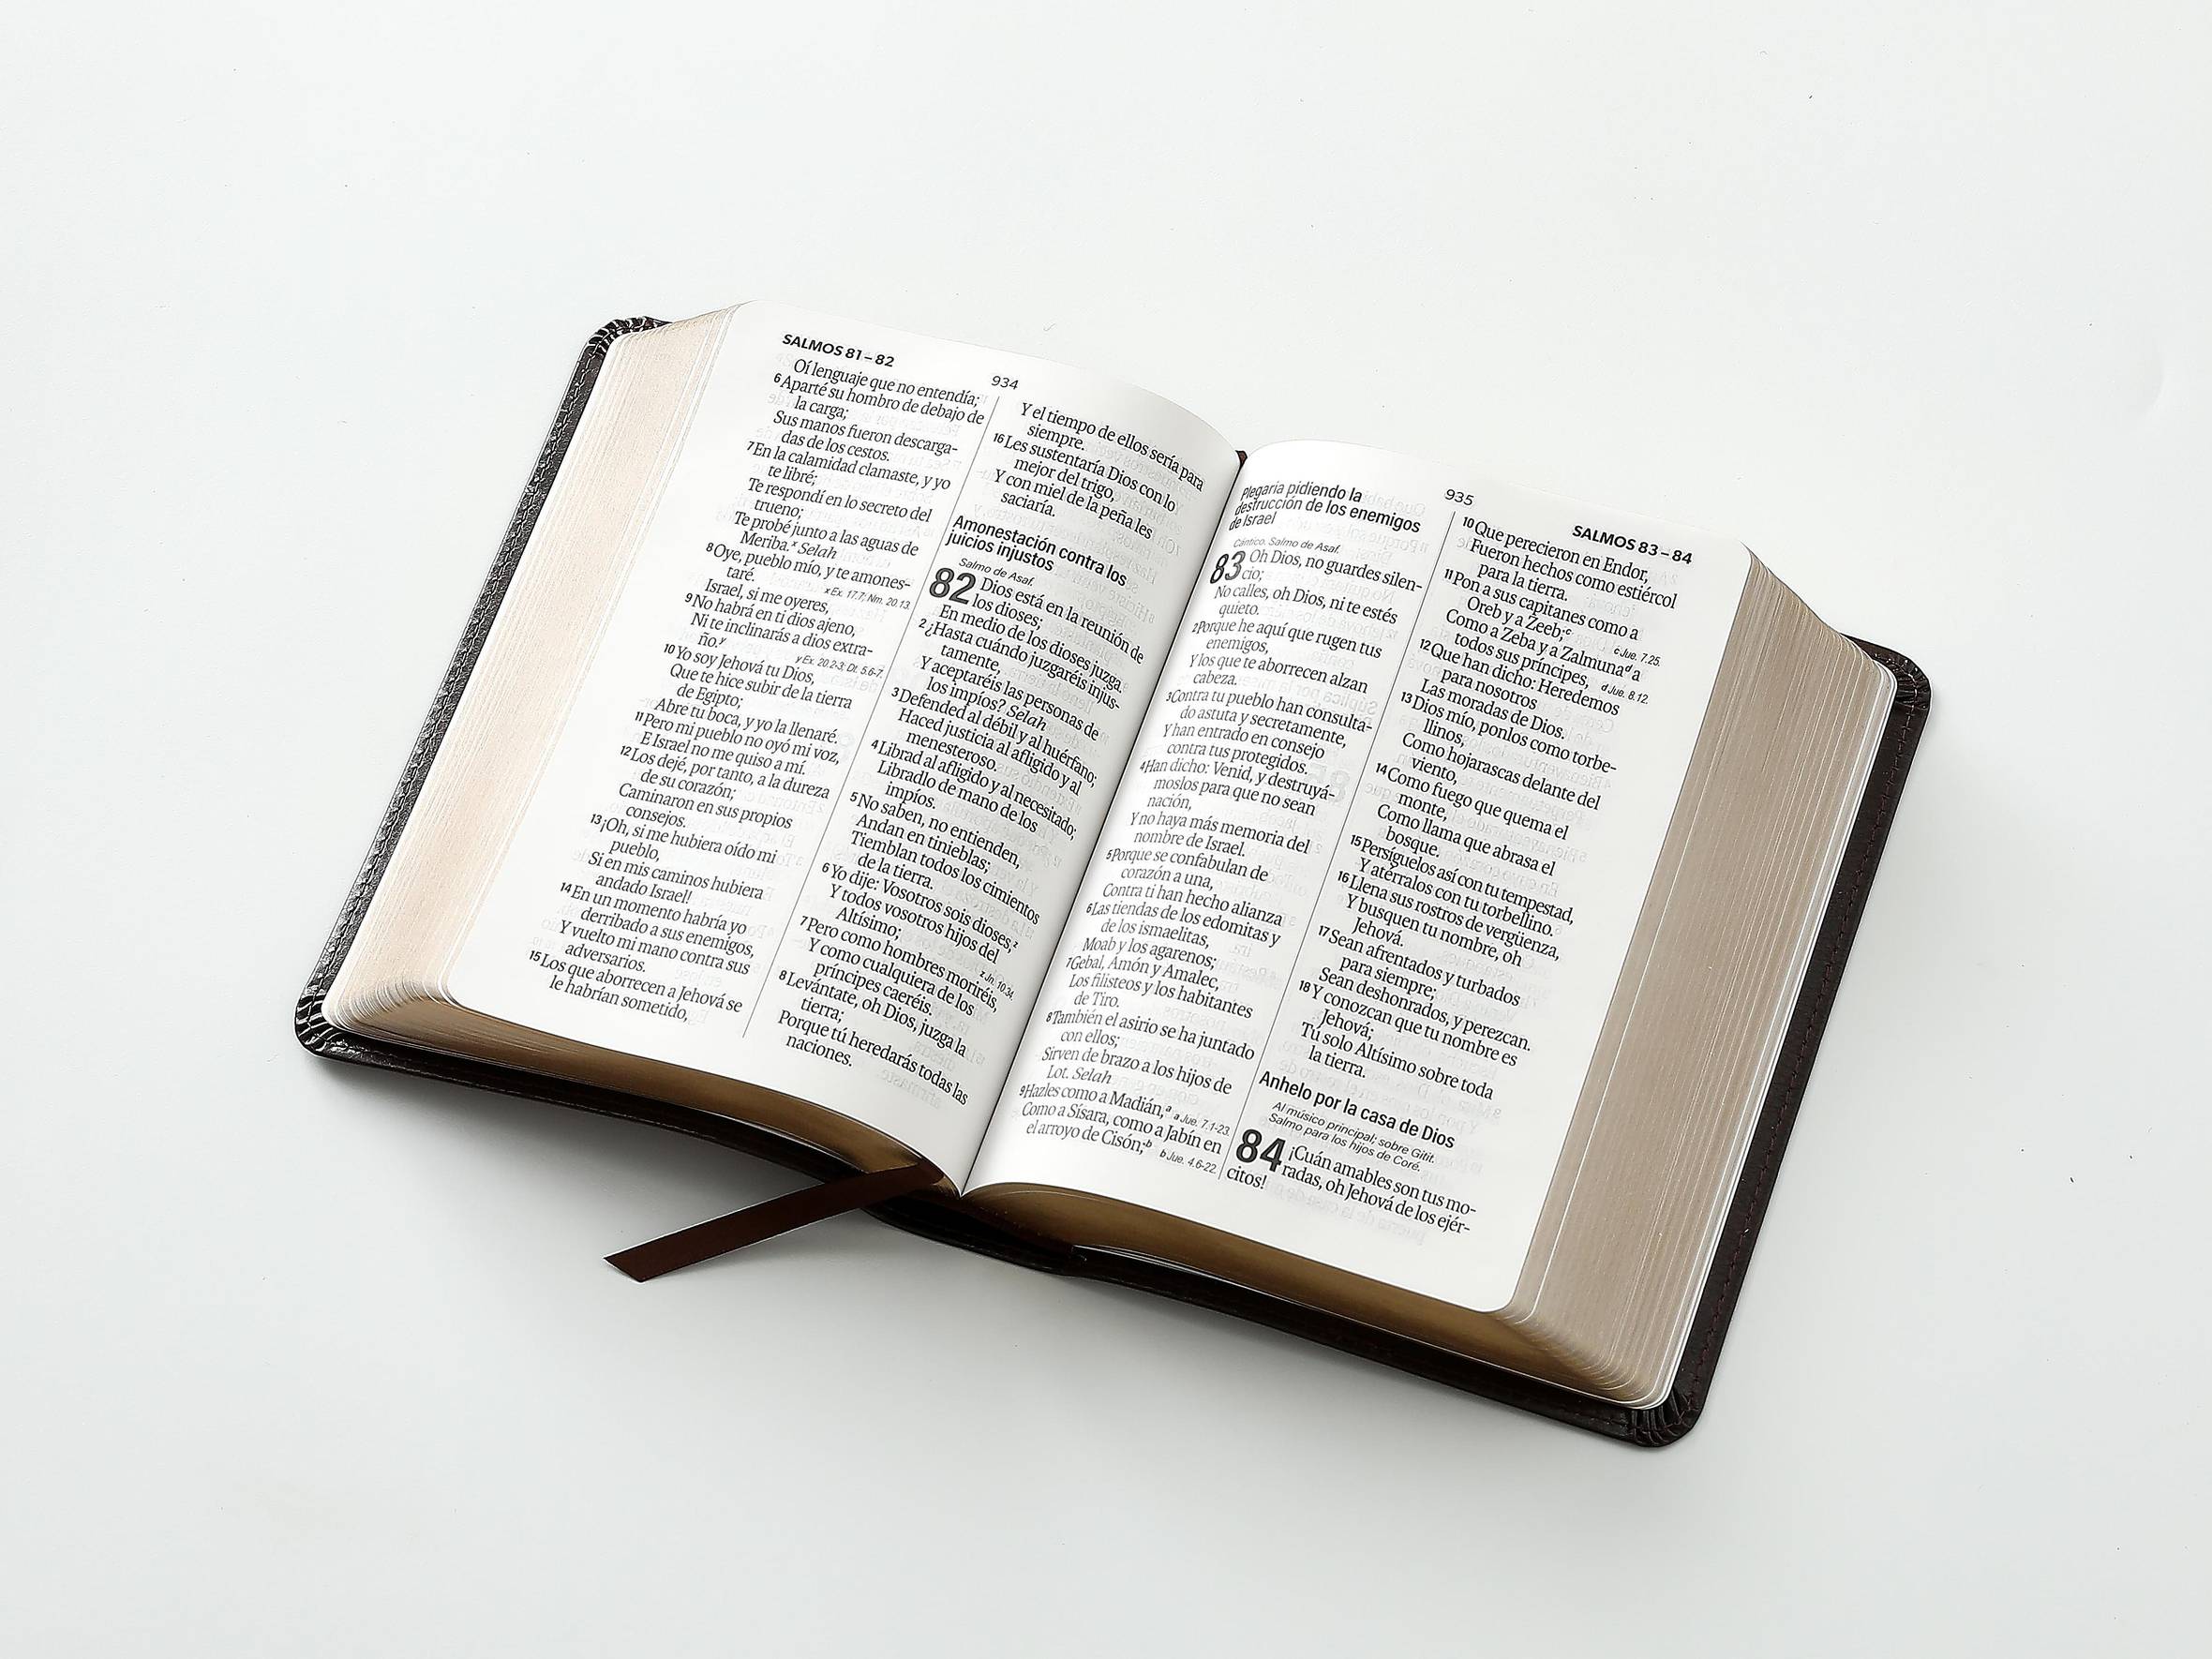 SALMOS 81–82
934
Oí lenguaje que no entendía;
6 Aparté su hombro de debajo de
la carga;
Sus manos fueron descarga-
das de los cestos.
7 En la calamidad clamaste, y yo
te libré;
Te respondí en lo secreto del
trueno;
Te probé junto a las aguas de
Meriba.x Selah
x Ex. 17.7; Nm. 20.13.
8 Oye, pueblo mío, y te amones-
taré.
Israel, si me oyeres,
9 No habrá en ti dios ajeno,
Ni te inclinarás a dios extra-
ño.y
y Ex. 20.2-3; Dt. 5.6-7.
10 Yo soy Jehová tu Dios,
Que te hice subir de la tierra
de Egipto;
Abre tu boca, y yo la llenaré.
11 Pero mi pueblo no oyó mi voz,
E Israel no me quiso a mí.
12 Los dejé, por tanto, a la dureza
de su corazón;
Caminaron en sus propios
consejos.
13 ¡Oh, si me hubiera oído mi
pueblo,
Si en mis caminos hubiera
andado Israel!
14 En un momento habría yo
derribado a sus enemigos,
Y vuelto mi mano contra sus
adversarios.
15 Los que aborrecen a Jehová se
le habrían sometido,
Y el tiempo de ellos sería para
siempre.
16 Les sustentaría Dios con lo
mejor del trigo,
Y con miel de la peña les
saciaría.
Amonestación contra los
juicios injustos
Salmo de Asaf.
82 Dios está en la reunión de
los dioses;
En medio de los dioses juzga.
2 ¿Hasta cuándo juzgaréis injus-
tamente,
Y aceptaréis las personas de
los impíos? Selah
3 Defended al débil y al huérfano;
Haced justicia al afligido y al
menesteroso.
4 Librad al afligido y al necesitado;
Libradlo de mano de los
impíos.
5 No saben, no entienden,
Andan en tinieblas;
Tiemblan todos los cimientos
de la tierra.
6 Yo dije: Vosotros sois dioses,z
Y todos vosotros hijos del
Altísimo;
z Jn. 10.34.
7 Pero como hombres moriréis,
Y como cualquiera de los
príncipes caeréis.
8 Levántate, oh Dios, juzga la
tierra;
Porque tú heredarás todas las
naciones.
935
SALMOS 83–84
Plegaria pidiendo la
destrucción de los enemigos
de Israel
Cántico. Salmo de Asaf.
83 Oh Dios, no guardes silen-
cio;
No calles, oh Dios, ni te estés
quieto.
2 Porque he aquí que rugen tus
enemigos,
Y los que te aborrecen alzan
cabeza.
3 Contra tu pueblo han consulta-
do astuta y secretamente,
Y han entrado en consejo
contra tus protegidos.
4 Han dicho: Venid, y destruyá-
moslos para que no sean
nación,
Y no haya más memoria del
nombre de Israel.
5 Porque se confabulan de
corazón a una,
Contra ti han hecho alianza
6 Las tiendas de los edomitas y
de los ismaelitas,
Moab y los agarenos;
7 Gebal, Amón y Amalec,
Los filisteos y los habitantes
de Tiro.
8 También el asirio se ha juntado
con ellos;
Sirven de brazo a los hijos de
Lot. Selah
9 Hazles como a Madián,a a Jue. 7.1-23.
Como a Sísara, como a Jabín en
el arroyo de Cisón;b b Jue. 4.6-22.
10 Que perecieron en Endor,
Fueron hechos como estiércol
para la tierra.
11 Pon a sus capitanes como a
Oreb y a Zeeb;c
c Jue. 7.25.
Como a Zeba y a Zalmunad a
todos sus príncipes, d Jue. 8.12.
12 Que han dicho: Heredemos
para nosotros
Las moradas de Dios.
13 Dios mío, ponlos como torbe-
llinos,
Como hojarascas delante del
viento,
14 Como fuego que quema el
monte,
Como llama que abrasa el
bosque.
15 Persíguelos así con tu tempestad,
Y atérralos con tu torbellino.
16 Llena sus rostros de vergüenza,
Y busquen tu nombre, oh
Jehová.
17 Sean afrentados y turbados
para siempre;
Sean deshonrados, y perezcan.
18 Y conozcan que tu nombre es
Jehová;
Tú solo Altísimo sobre toda
la tierra.
Anhelo por la casa de Dios
Al músico principal; sobre Gitit.
Salmo para los hijos de Coré.
84 ¡Cuán amables son tus mo-
radas, oh Jehová de los ejér-
citos!